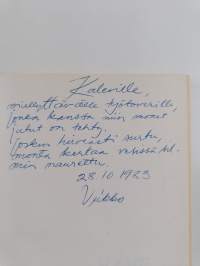 Kaleville,
miellyttävälle työtoverille,
jonka kanssa niin monet
jutut on tehty.
Joskus hirveästi surtu,
monta kertaa vesissä sil-
min naurettu.
28.10 1983
Veikko